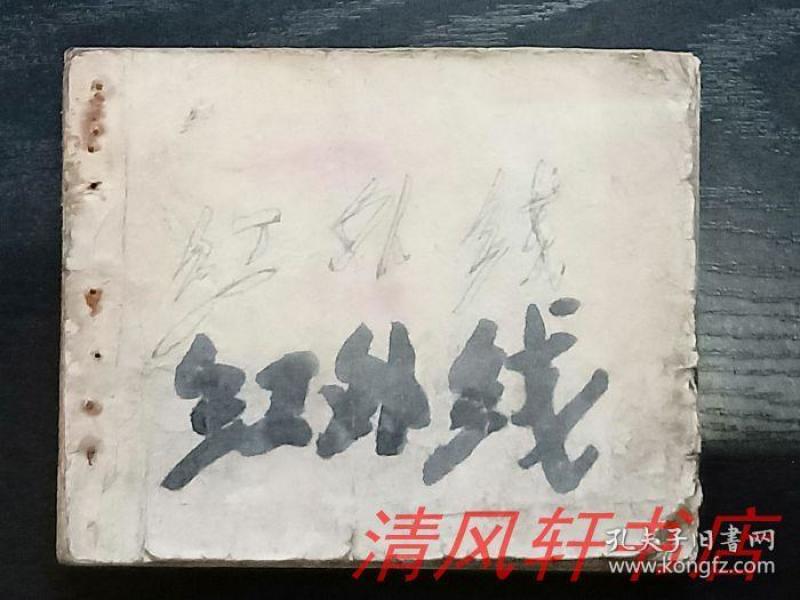 红外线
红外线
清风轩书店
孔夫子旧書网
www.kongfz.com